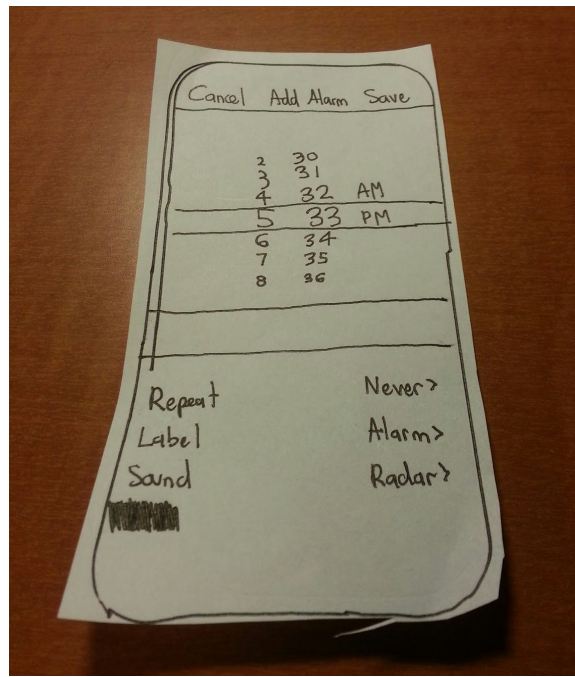 Cancel Add Alarm Save
2 30
3 31
4 32 AM
5 33 PM
6 34
7 35
8 36
Repeat Never>
Label Alarm>
Sound Radar>